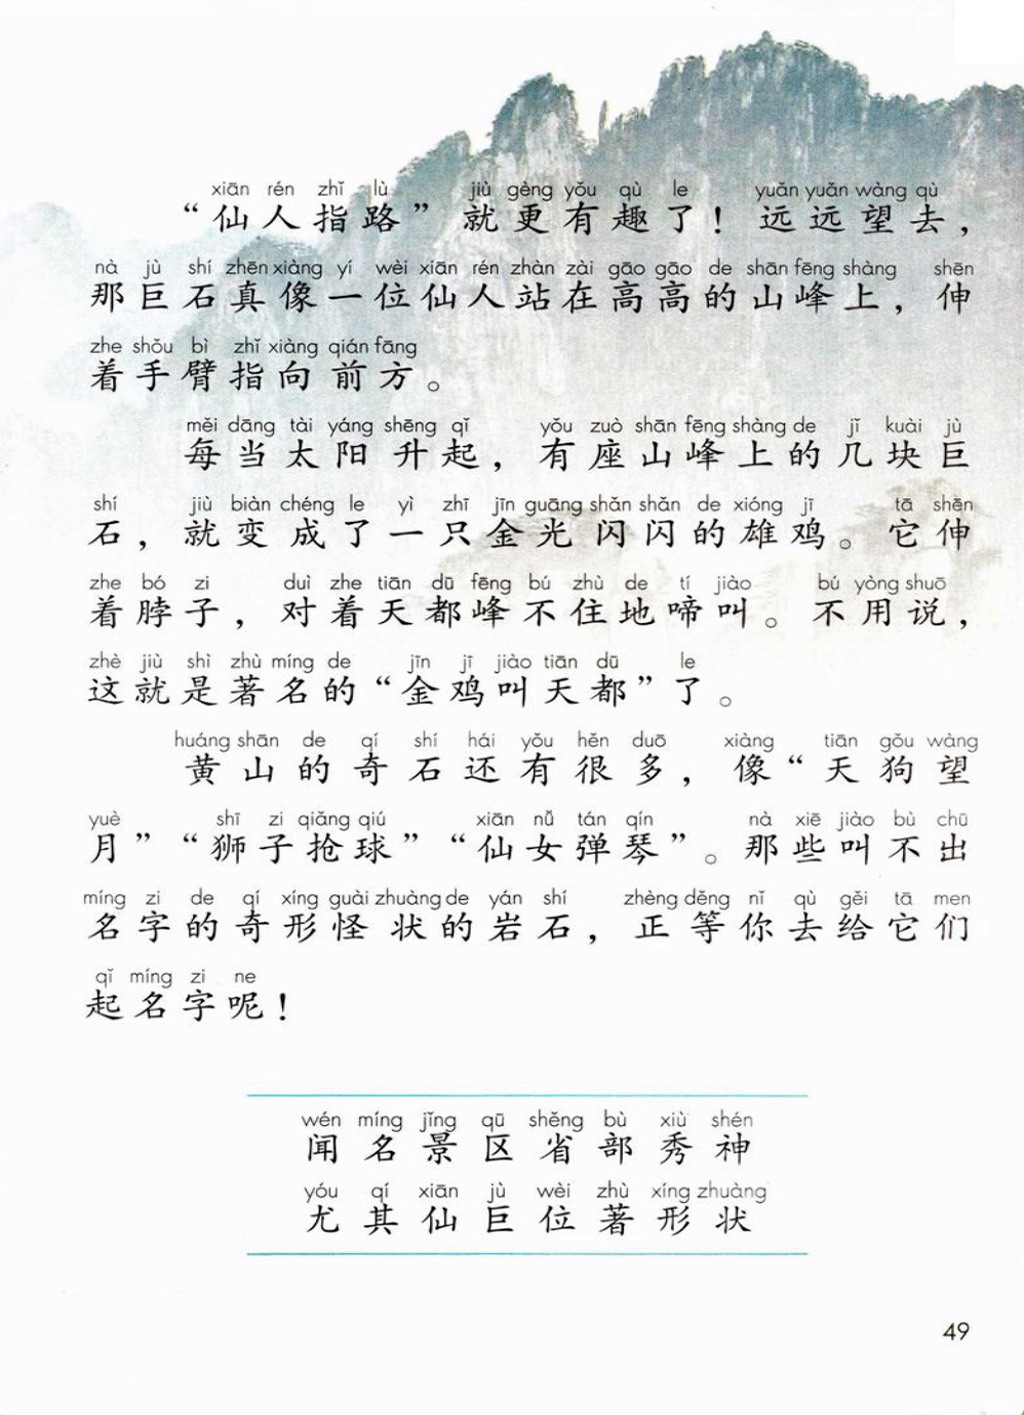 xiān rén zhǐ lù jiù gèng yǒu qù le yuǎn yuǎn wàng qù
“仙人指路”就更有趣了！远远望去，
nà jù shí zhēn xiàng yí wèi xiān rén zhàn zài gāo gāo de shān fēng shàng shēn
那巨石真像一位仙人站在高高的山峰上，伸
zhe shǒu bì zhǐ xiàng qián fāng
着手臂指向前方。
měi dāng tài yáng shēng qǐ yǒu zuò shān fēng shàng de jǐ kuài jù
每当太阳升起，有座山峰上的几块巨
shí jiù biàn chéng le yì zhī jīn guāng shǎn shǎn de xióng jī tā shēn
石，就变成了一只金光闪闪的雄鸡。它伸
zhe bó zi duì zhe tiān dū fēng bú zhù de tí jiào bú yòng shuō
着脖子，对着天都峰不住地啼叫。不用说，
zhè jiù shì zhù míng de jīn jī jiào tiān dū le
这就是著名的“金鸡叫天都”了。
huáng shān de qí shí hái yǒu hěn duō xiàng tiān gǒu wàng
黄山的奇石还有很多，像“天狗望
yuè shī zi qiǎng qiú xiān nǚ tán qín nà xiē jiào bù chū
月”“狮子抢球”“仙女弹琴”。那些叫不出
míng zi de qí xíng guài zhuàng de yán shí zhèng děng nǐ qù gěi tā men
名字的奇形怪状的岩石，正等你去给它们
qǐ míng zi ne
起名字呢！
wén míng jǐng qū shěng bù xiù shén
闻名景区省部秀神
yóu qí xiān jù wèi zhù xíng zhuàng
尤其仙巨位著形状
49